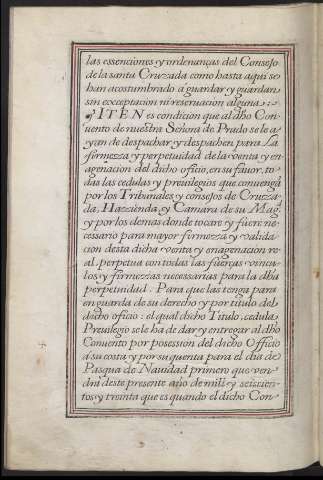 las essenciones y ordenanças del Consejo
de la santa Cruzada como hasta aqui se
han acostumbrado a guardar y guardan
sin exceptacion ni reseruacion alguna
ITEN es condicion que al dho Con
uento de nuestra Señora de Prado se le a
yan de despachar y despachen para La
firmezza y perpetuidad de la venta y en
agenacion del dicho oficio, en su fauor, to
das las cedulas y preuilegios que conuenga
por los Tribunales y consejos de Cruza
da, Hazienda y Camara de su Mag.
y por los demas donde tocare y fuere ne
cessario para mayor firmezza y valida
cion desta dicha venta y enagenacion re
al, perpetua con todas las fuerças vincu
los y firmezzas necessarias para la dha
perpetuidad. Para que las tenga para
en guarda de su derecho y por titulo del
dicho oficio: el qual dicho Titulo, cedula,
Preuilegio se le ha de dar y entregar al dho
Conuento por possession del dicho Officio
á su costa y por su quenta para el dia de
Pasqua de Nauidad primero que ven
drá deste presente año de mill y seiscien
tos y treinta que es quando el dicho Con